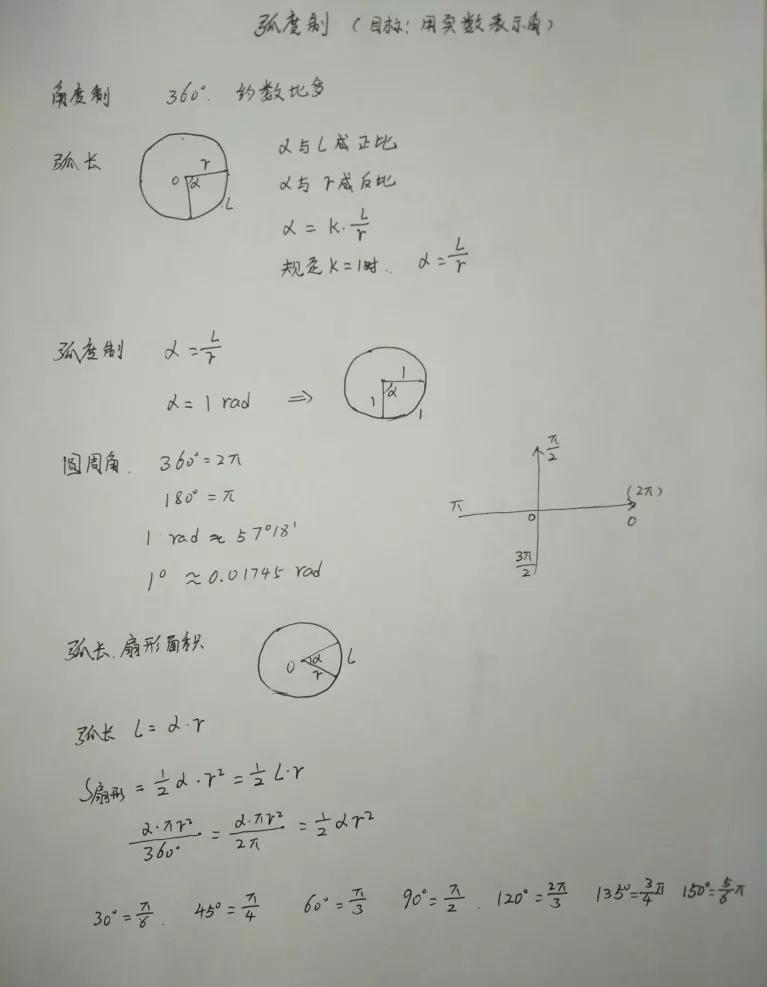 弧度制 (目标:用实数表示角)
角度制 360°. 约数比多
弧长 r O α L α与L成正比
α与r成反比
α = K·L/r
规定K=1时. α=L/r
弧度制 α=L/r
α=1 rad ⇒ 1 α 1 1
圆周角. 360°=2π
180°=π
1 rad ≈ 57°18'
1° ≈0.01745 rad
π/2
π O (2π) 0
3π/2
弧长.扇形面积 O α r L
弧长 L=α·r
S扇形=1/2α·r²=1/2L·r
α·πr²/360°=α·πr²/2π=1/2αr²
30°=π/6. 45°=π/4 60°=π/3 90°=π/2. 120°=2π/3 135°=3/4π 150°=5/6π